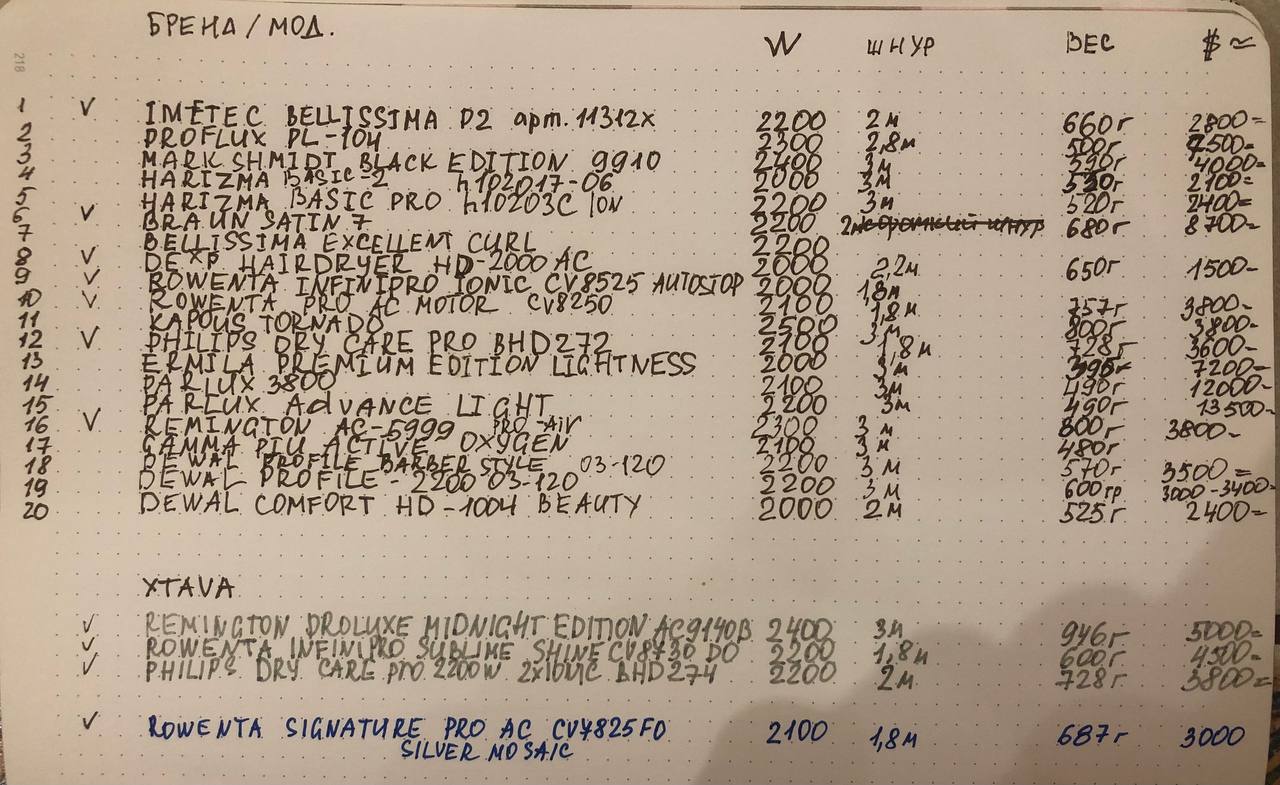 БРЕНД / МОД. W ШНУР ВЕС $ ≈
218
1 ✓ IMETEC BELLISSIMA P2 арт. 11312x 2200 2м 660г 2800=
2 PROFLUX PL-104 2300 2,8м 500г 2500=
3 MARK SHMIDT BLACK EDITION 9910 2400 3м 590г 4000=
4 HARIZMA BASIC-2 h102017-06 2000 3м 530г 2100=
5 HARIZMA BASIC PRO h10203C ION 2200 3м 520г 2400=
6 ✓ BRAUN SATIN 7 2200 2м 680г 8700=
7 BELLISSIMA EXCELLENT CURL 2200
8 ✓ DEXP HAIRDRYER HD-2000 AC 2000 2,2м 650г 1500-
9 ✓ ROWENTA INFINIPRO IONIC CV8525 AUTOSTOP 2000 1,8м
10 ✓ ROWENTA PRO AC MOTOR CV8250 2100 1,8м 757г 3800=
11 KAPOUS TORNADO 2500 3м 800г 3800=
12 ✓ PHILIPS DRY CARE PRO BHD272 2100 1,8м 728г 3600-
13 ERMILA PREMIUM EDITION LIGHTNESS 2000 3м 396г 7200=
14 PARLUX 3800 2100 3м 490г 12000-
15 PARLUX AdVANCE LIGHT 2200 3м 490г 13500=
16 ✓ REMINGTON AC-5999 PRO-Air 2300 3м 800г 3800-
17 GAMMA PIU ACTIVE OXYGEN 2100 3м 480г
18 DEWAL PROFILE BARBER STYLE 03-120 2200 3м 570г 3500=
19 DEWAL PROFILE - 2200 03-120 2200 3м 600гр 3000-3400=
20 DEWAL COMFORT HD-1004 BEAUTY 2000 2м 525г 2400=
XTAVA
✓ REMINGTON DROLUXE MIDNIGHT EDITION AC9140B 2400 3м 946г 5000=
✓ ROWENTA INFINIPRO SUBLIME SHINE CV8730 DO 2200 1,8м 600г 4500=
✓ PHILIPS DRY CARE PRO 2200W 2xIONIC BHD274 2200 2м 728г 3800=
✓ ROWENTA SIGNATURE PRO AC CV7825FO 2100 1,8м 687г 3000
SILVER MOSAIC